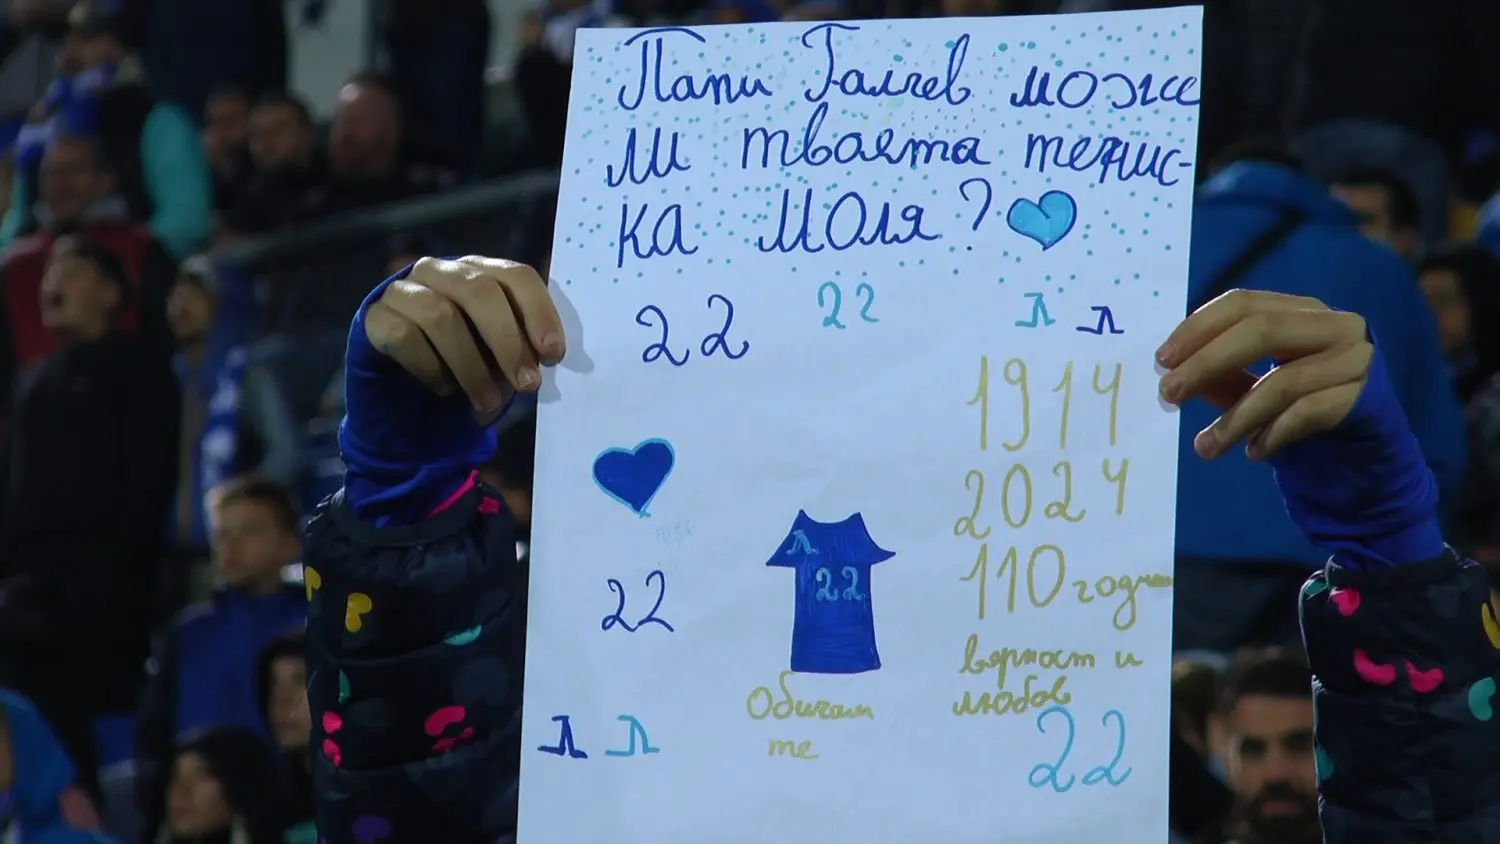 Папи Галчев може
ли твоята тенис-
ка моля?
22 22 Л Л
1914
2024
110 годин
верност и
любов
22
22
Л 22
Обичам
те
Л Л